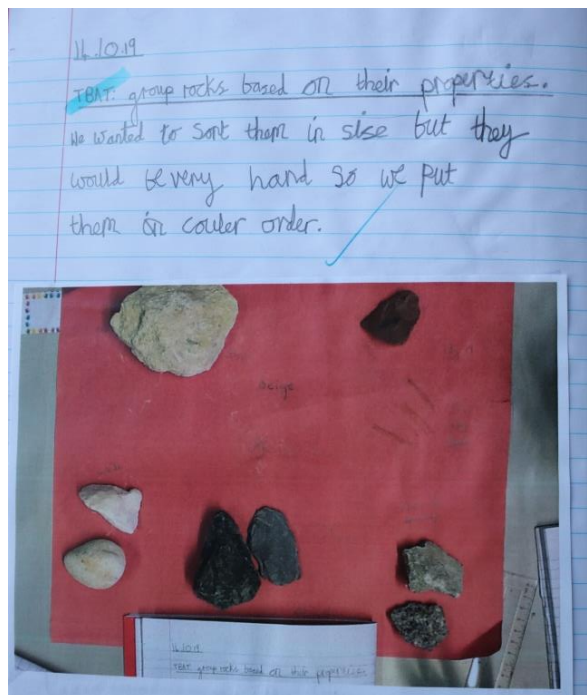 14.10.19
TBAT: group rocks based on their properties.
We wanted to sort them in sise but they
would be very hand so we put
them in couler order.
beige
TBAT: group rocks based on their properties